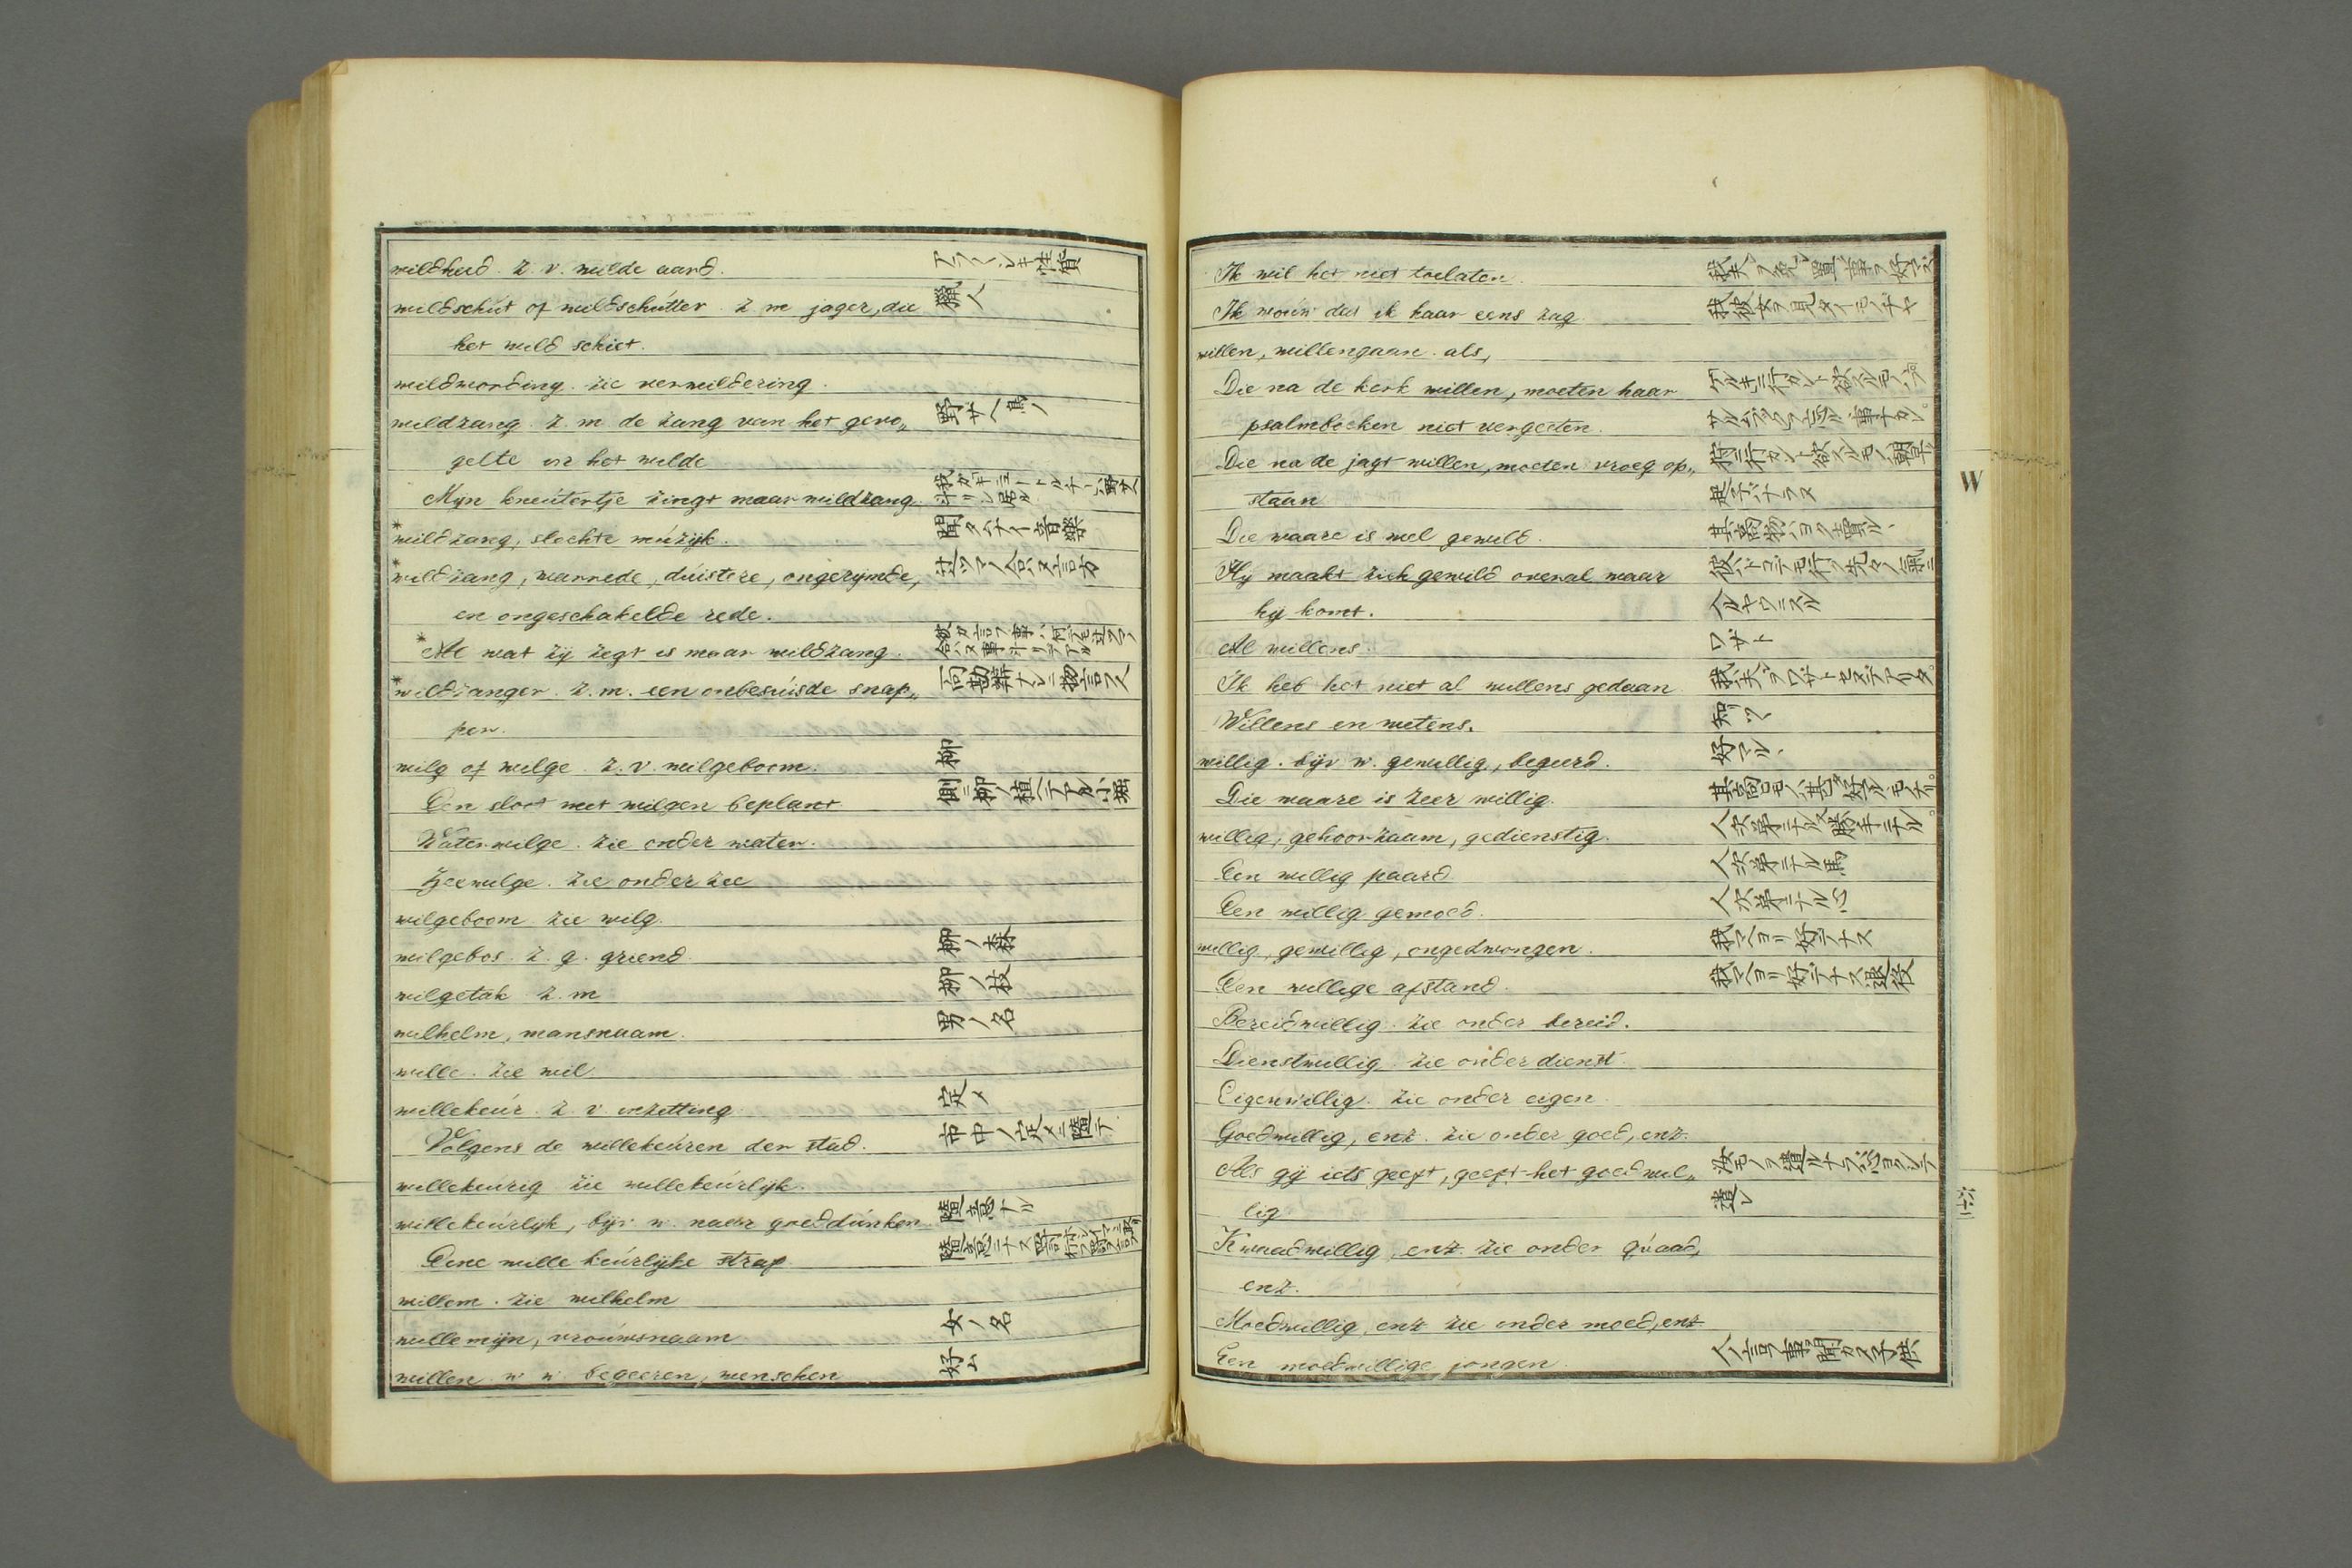 wildheid. z. v. wilde aard. アラ〱シキ性質
wildschút of wildschútter. z m jager, die 獵人
het wild schiet.
wildwording. zie verwildering.
wildzang. z. m de zang van het gevo„
gelte in het wilde
Myn kneútertje zingt maar wildzang.
*wildzang, slechte múzijk. 聞タクナイ音樂
*wildzang, warrede, dúistere, ongerymde, 辻ツマノ合ハヌ言方
en ongeschakelde rede.
*Al wat zij zegt is maar wildzang.
*wildzanger. z. m. een onbesúisde snap„
per.
wilg of wilge. z. v. wilgeboom. 柳
Een sloot met wilgen beplant 側ニ柳ノ植ヘテアル小堀
Waterwilge. zie onder water.
Zeewilge. zie onder zee
wilgeboom zie wilg.
wilgebos. z. g. griend 柳ノ森
wilgetak z. m 柳ノ枝
wilhelm, mansnaam. 男ノ名
wille. zie wil
willekeúr. z. v. inzetting 定メ
Volgens de willekeúren der stad. 市中ノ定メニ隨テ
willekeurig zie willekeúrlijk.
willekeúrlyk, bijv w. naar goeddúnken 隨意ナル
Eene wille keúrlijke straf
willem. zie wilhelm
willemijn, vroúwsnaam 女ノ名
willen w w begeeren, wenschen 好ム
Ik wil het niet toelaten.
Ik woúw dat ik haar eens zag 我彼女ヲ見タイモノヂャ
willen, willengaan. als,
Die na de kerk willen, moeten haar
psalmboeken niet vergeeten.
Die na de jagt willen, moeten vroeg op„
staan 起子バナラヌ
W
Die waare is wel gewild. 其商物ハヨク賣ル、
Hy maakt zich gewild overal waar
hij komt. 入ルヤウニスル
Al willens. ワザト
Ik heb het niet al willens gedaan
Willens en wetens. 知リツヽ
willig. bijv w. gewillig, begeerd. 好マル、
Die waare is zeer willig.
willig, gehoorzaam, gedienstig.
Een willig paard 人次第ニナル馬
Een willig gemoed. 人次第ニナル心
willig, gewillig, ongedwongen. 我マヽヨリ好デナス
Een willige afstand. 我マヽヨリ好デナス退役
Bereidwillig. zie onder bereid.
Dienstwillig zie onder dienst.
Eigenwillig. zie onder eigen
Goedwillig, enz. zie onder goed, enz.
Als gij iets geeft, geeft het goedwil„
lig 遣レ
Kwaadwillig, enz. zie onder qúaad,
enz.
Moedwillig, enz zie onder moed, enz
Een moedwillige jongen. 人ノ言フ事聞カヌ子供